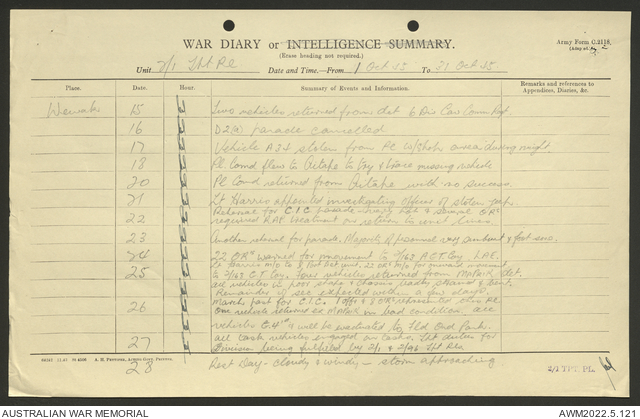 WAR DIARY or INTELLIGENCE SUMMARY.
Army Form C.2118.
(Erase heading not required.)
Unit 2/1 Tpt Pl Date and Time—From 1 Oct 45 To 31 Oct 45
Place. Date. Hour. Summary of Events and Information. Remarks and references to Appendices, Diaries, &c.
Wewak 15 Two vehicles returned from det 6 Div Cav Comm Regt.
16 D2(a) parade cancelled
17 Vehicle stolen from Pl W/Shop area during night
18 Pl Comd flew to Aitape to try & trace missing vehicle
20 Pl Comd returned from Aitape with no success.
21 Lt Harris appointed investigating officer of stolen jeep.
Rehearsal for C.I.C. parade
22 required RAP treatment on return to unit lines
23 Another rehearsal for parade. Majority of personnel very & foot sore.
24 22 ORs warned for movement to 2/163 AGT Coy. LAE.
25 to 2/163 G.T Coy. Four vehicles returned from det.
all vehicles in poor state & chassis badly strained & bent.
Remainder of expected within a few days.
26 March past for C.I.C. 1 offr & 8 ORs represented this Pl.
One vehicle returned ex in bad condition. all
vehicles & will be evacuated to Fld Ord Park.
27 all task vehicles engaged on tasks. Tpt duties for
Division being fulfilled by 2/1 & Tpt Pls
28 Rest Day - cloudy & windy - storm approaching
A. H. Pettifer, Acting Govt. Printer.
2/1 TPT. PL.
AUSTRALIAN WAR MEMORIAL
AWM2022.5.121